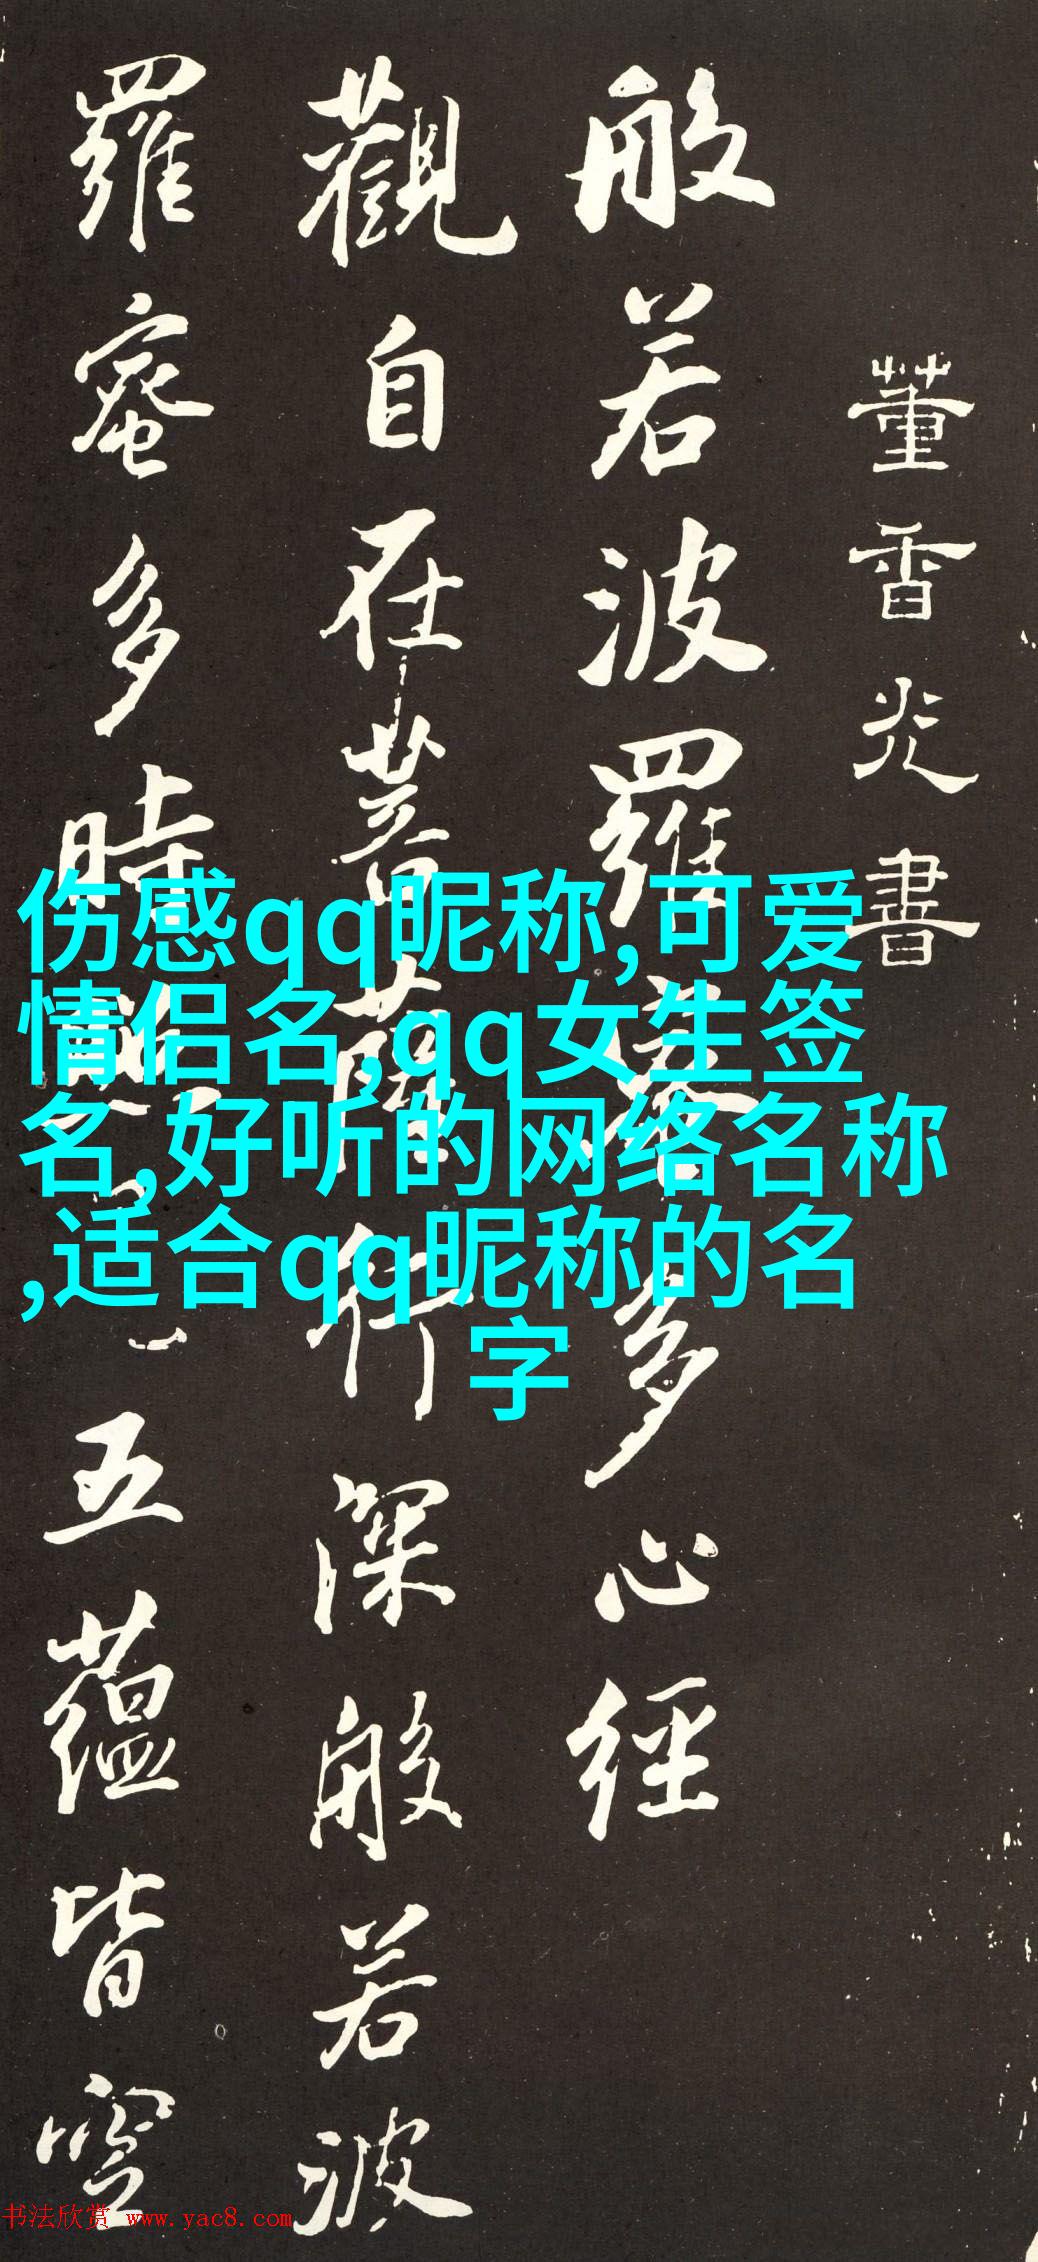 董香光書
般若波羅蜜多心經
觀自在菩薩行深般若波
羅蜜多時照見五蘊皆空
伤感qq昵称,可爱
情侣名,qq女生签
名,好听的网络名称
,适合qq昵称的名
字
书法欣赏 www.yac8.com